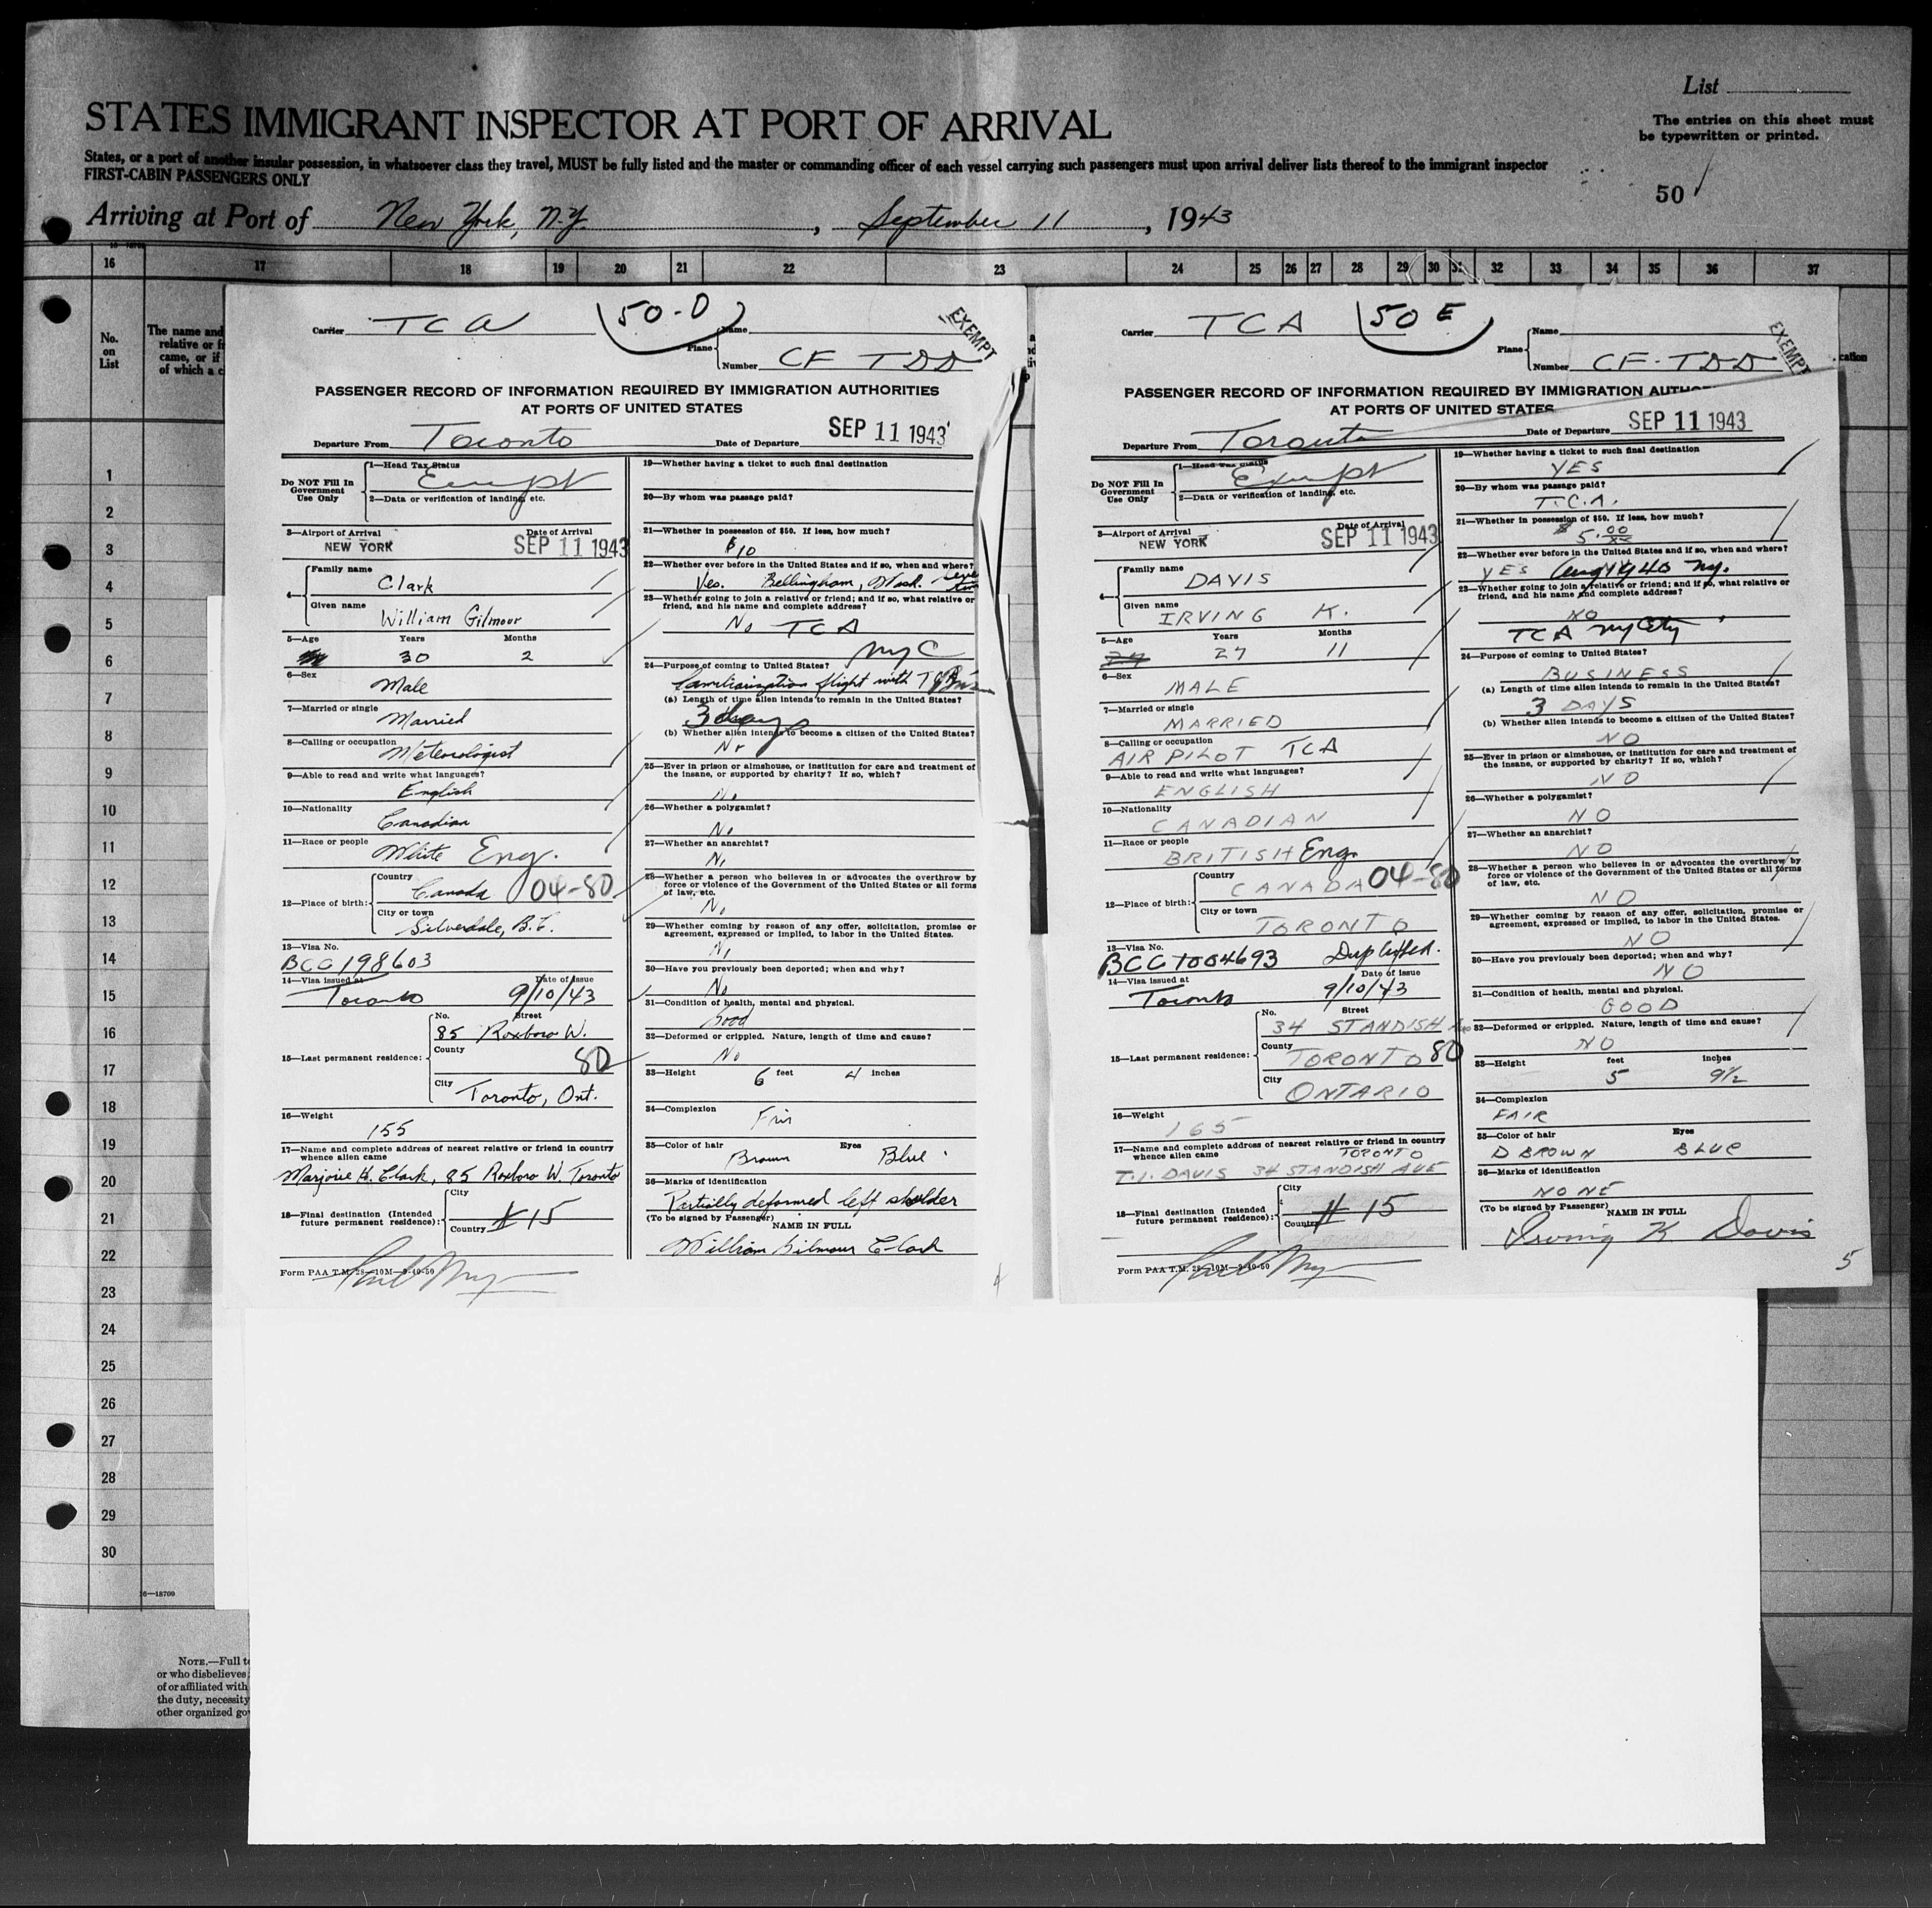 List
STATES IMMIGRANT INSPECTOR AT PORT OF ARRIVAL
The entries on this sheet must
be typewritten or printed.
States, or a port of another insular possession, in whatsoever class they travel, MUST be fully listed and the master or commanding officer of each vessel carrying such passengers must upon arrival deliver lists thereof to the immigrant inspector
FIRST-CABIN PASSENGERS ONLY
50
Arriving at Port of New York, N.Y. , September 11 , 1943
16 17 18 19 20 21 22 23 24 25 26 27 28 29 30 31 32 33 34 35 36 37
No.
on
List
The name and
relative or fr
came, or if
of which a c
1
2
3
4
5
6
7
8
9
10
11
12
13
14
15
16
17
18
19
20
21
22
23
24
25
26
27
28
29
30
16—18709
NOTE.—Full t
or who disbelieves
of or affiliated with
the duty, necessity
other organized gov
Carrier TCA 50-D
EXEMPT
Plane Name
Number CF TDD
PASSENGER RECORD OF INFORMATION REQUIRED BY IMMIGRATION AUTHORITIES
AT PORTS OF UNITED STATES
Departure From Toronto Date of Departure SEP 11 1943
Do NOT Fill In
Government
Use Only
1—Head Tax Status
Exempt
2—Data or verification of landing, etc.
3—Airport of Arrival Date of Arrival
NEW YORK SEP 11 1943
4— Family name
Clark
Given name
William Gilmour
5—Age Years Months
30 2
6—Sex
Male
7—Married or single
Married
8—Calling or occupation
Meteorologist
9—Able to read and write what languages?
English
10—Nationality
Canadian
11—Race or people
White Eng.
12—Place of birth: Country
Canada 04-80
City or town
Silverdale, B.C.
13—Visa No.
BCC 198603
14—Visa issued at Date of Issue
Toronto 9/10/43
15—Last permanent residence: No. Street
85 Roxboro W.
County
80
City
Toronto, Ont.
16—Weight
155
17—Name and complete address of nearest relative or friend in country
whence alien came
Marjorie B. Clark, 85 Roxboro W. Toronto
18—Final destination (Intended
future permanent residence): City
Country # 15
Form PAA T.M. 28—10M—9-40-50
19—Whether having a ticket to such final destination
20—By whom was passage paid?
21—Whether in possession of $50. If less, how much?
$10
22—Whether ever before in the United States and if so, when and where?
Yes. Bellingham, Wash.
23—Whether going to join a relative or friend; and if so, what relative or
friend, and his name and complete address?
No TCA
NYC
24—Purpose of coming to United States?
familiarization flight with TCA
(a) Length of time alien intends to remain in the United States?
3 days
(b) Whether alien intends to become a citizen of the United States?
No
25—Ever in prison or almshouse, or institution for care and treatment of
the insane, or supported by charity? If so, which?
No
26—Whether a polygamist?
No
27—Whether an anarchist?
No
28—Whether a person who believes in or advocates the overthrow by
force or violence of the Government of the United States or all forms
of law, etc.
No
29—Whether coming by reason of any offer, solicitation, promise or
agreement, expressed or implied, to labor in the United States.
No
30—Have you previously been deported; when and why?
No
31—Condition of health, mental and physical.
Good
32—Deformed or crippled. Nature, length of time and cause?
No
33—Height 6 feet 4 inches
34—Complexion
Fair
35—Color of hair Eyes
Brown Blue
36—Marks of identification
Partially deformed left sholder
(To be signed by Passenger)
NAME IN FULL
William Gilmour Clark
Carrier TCA 50 E
EXEMPT
cation
Plane Name
Number CF-TDD
PASSENGER RECORD OF INFORMATION REQUIRED BY IMMIGRATION AUTHO
AT PORTS OF UNITED STATES
Departure From Toronto Date of Departure SEP 11 1943
Do NOT Fill In
Government
Use Only
1—Head Tax Status
Exempt
2—Data or verification of landing, etc.
3—Airport of Arrival Date of Arrival
NEW YORK SEP 11 1943
4— Family name
DAVIS
Given name
IRVING K.
5—Age Years Months
27 27 11
6—Sex
MALE
7—Married or single
MARRIED
8—Calling or occupation
AIR PILOT TCA
9—Able to read and write what languages?
ENGLISH
10—Nationality
CANADIAN
11—Race or people
BRITISH Eng.
12—Place of birth: Country
CANADA 04-80
City or town
TORONTO
13—Visa No.
BCC 1004693
14—Visa issued at Date of issue
Toronto 9/10/43
15—Last permanent residence: No. Street
34 STANDISH Ave
County
TORONTO 80
City
ONTARIO
16—Weight
165
17—Name and complete address of nearest relative or friend in country
whence alien came TORONTO
T.I. DAVIS 34 STANDISH AVE
18—Final destination (Intended
future permanent residence): City
Country # 15
Form PAA T.M. 28—10M—9-40-50
19—Whether having a ticket to such final destination
YES
20—By whom was passage paid?
T.C.A.
21—Whether in possession of $50. If less, how much?
$ 5.00
22—Whether ever before in the United States and if so, when and where?
YES Aug 1940 NY.
23—Whether going to join a relative or friend; and if so, what relative or
friend, and his name and complete address?
NO
TCA NY City
24—Purpose of coming to United States?
BUSINESS
(a) Length of time alien intends to remain in the United States?
3 DAYS
(b) Whether alien intends to become a citizen of the United States?
NO
25—Ever in prison or almshouse, or institution for care and treatment of
the insane, or supported by charity? If so, which?
NO
26—Whether a polygamist?
NO
27—Whether an anarchist?
NO
28—Whether a person who believes in or advocates the overthrow by
force or violence of the Government of the United States or all forms
of law, etc.
NO
29—Whether coming by reason of any offer, solicitation, promise or
agreement, expressed or implied, to labor in the United States.
NO
30—Have you previously been deported; when and why?
NO
31—Condition of health, mental and physical.
GOOD
32—Deformed or crippled. Nature, length of time and cause?
NO
33—Height feet inches
5 9½
34—Complexion
FAIR
35—Color of hair Eyes
D BROWN BLUE
36—Marks of identification
NONE
(To be signed by Passenger)
NAME IN FULL
Irving K Davis
5